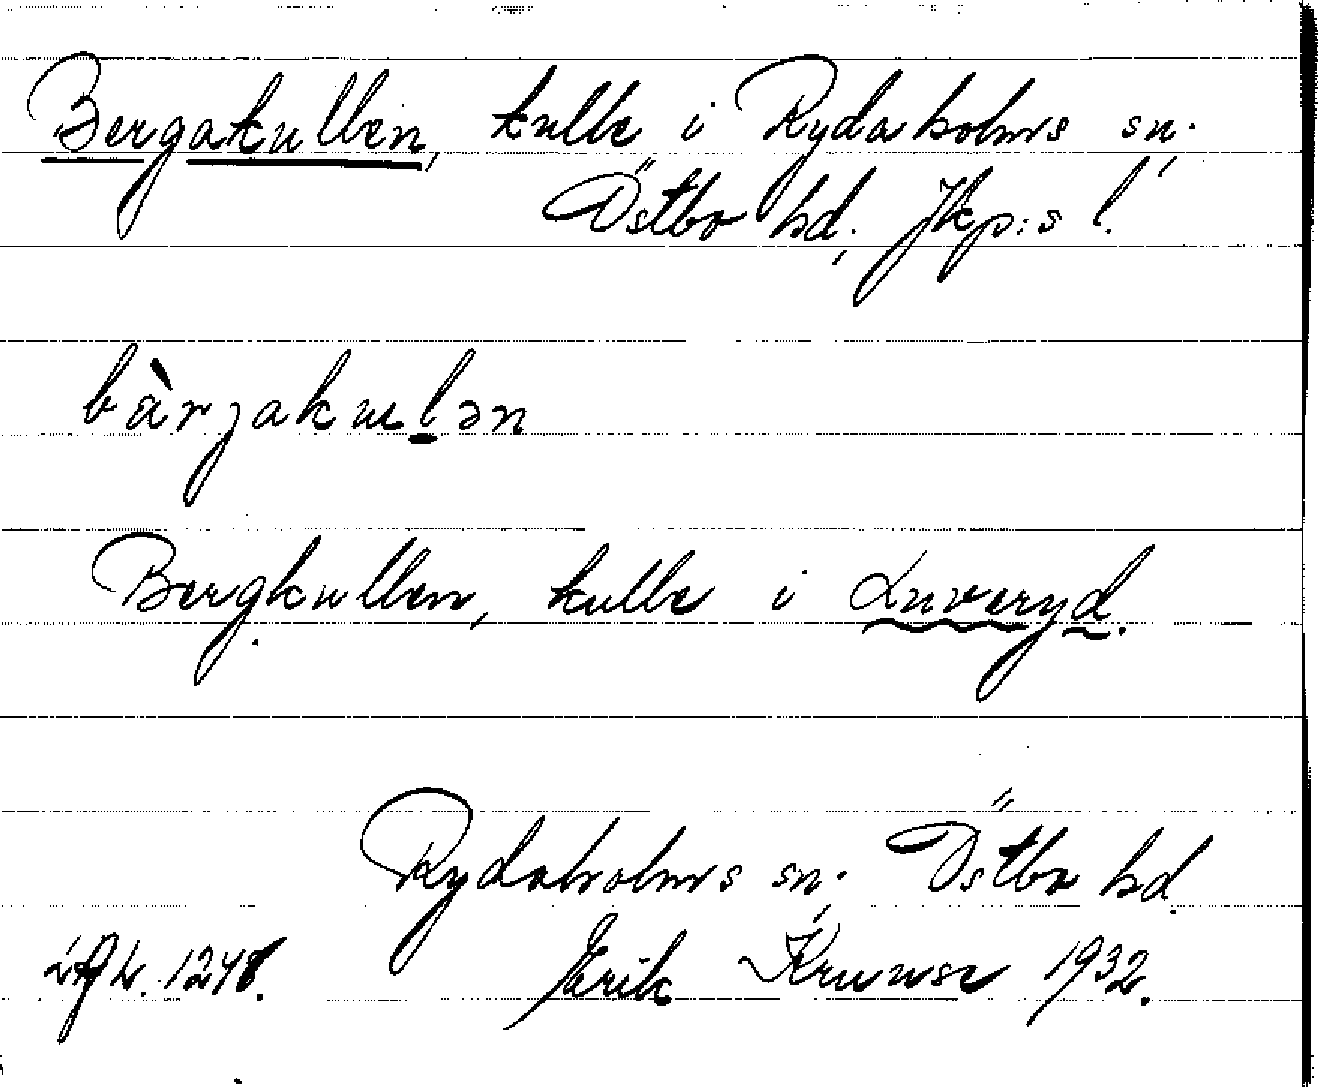 Bergakullen, kulle i Rydaholms sn.
Östbo hd. Jkp:s l.
bàrjakulən
Bergkullen, kulle i Luveryd.
Rydaholms sn. Östbo hd.
1248. Erik Krumse 1932.